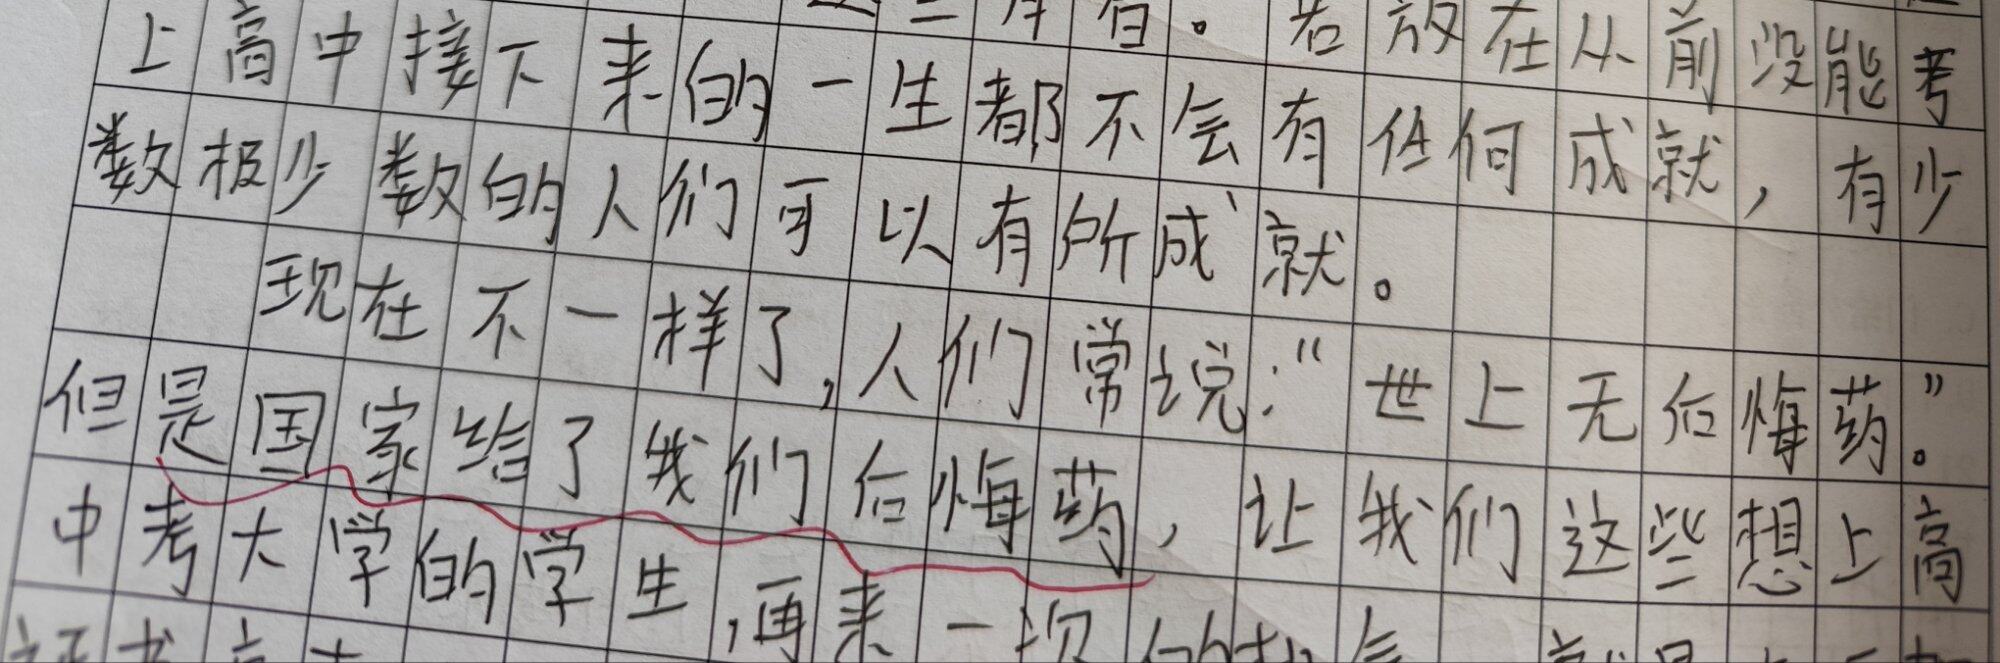 。若放在从前没能考
上高中接下来的一生都不会有任何成就，有少
数极少数的人们可以有所成就。
现在不一样了，人们常说：“世上无后悔药。”
但是国家给了我们后悔药，让我们这些想上高
中考大学的学生，再来一次的机会